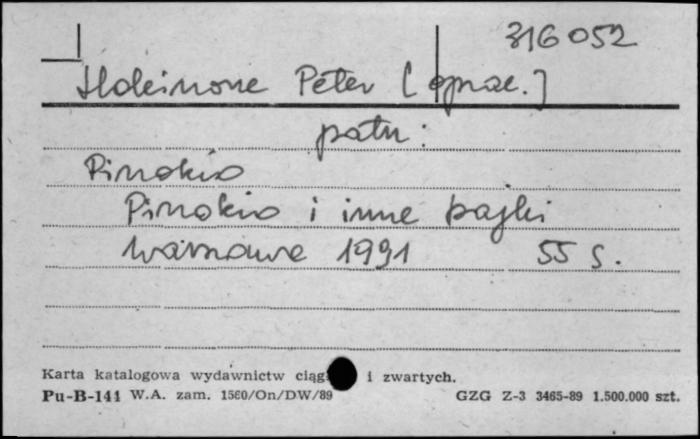 316052
Peter [oprac.]
patrz:
Pinokio
Pinokio i inne bajki
Warszawa 1991 55 s.
Karta katalogowa wydawnictw ciągł i zwartych.
Pu-B-141 W.A. zam. 1560/On/DW/89 GZG Z-3 3465-89 1.500.000 szt.